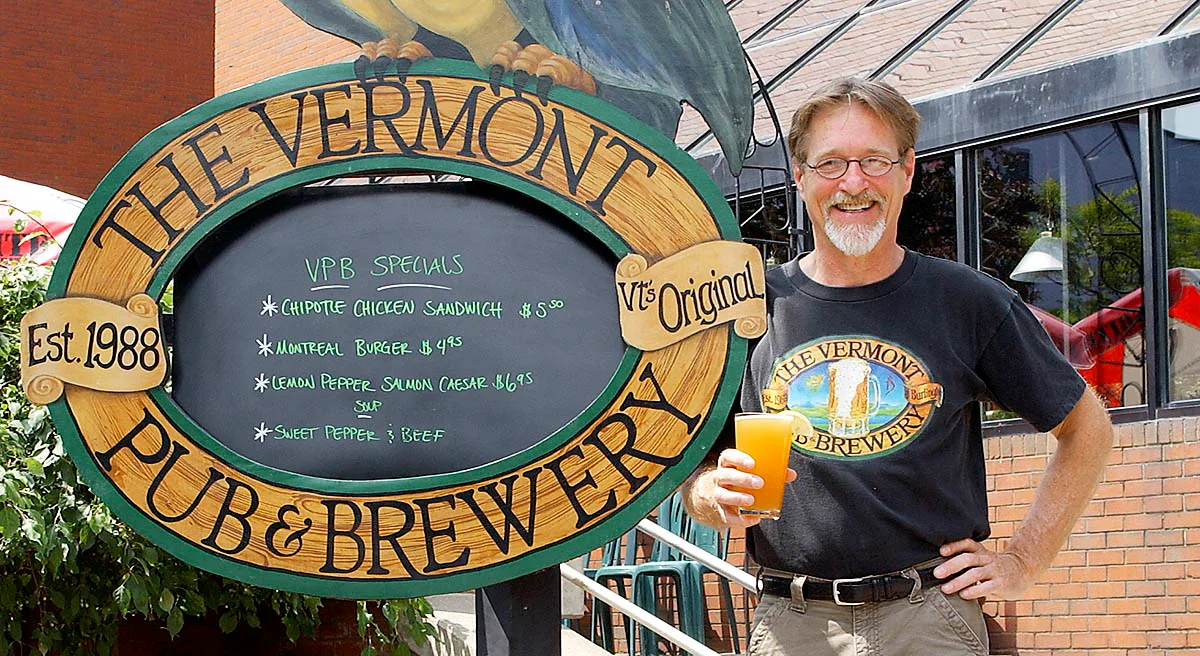 THE VERMONT
Est. 1988
Vt's Original
VPB SPECIALS
* CHIPOTLE CHICKEN SANDWICH $5.50
* MONTREAL BURGER $4.95
* LEMON PEPPER SALMON CAESAR $6.95
SOUP
* SWEET PEPPER & BEEF
PUB & BREWERY
THE VERMONT
Burlington
B-BREWERY